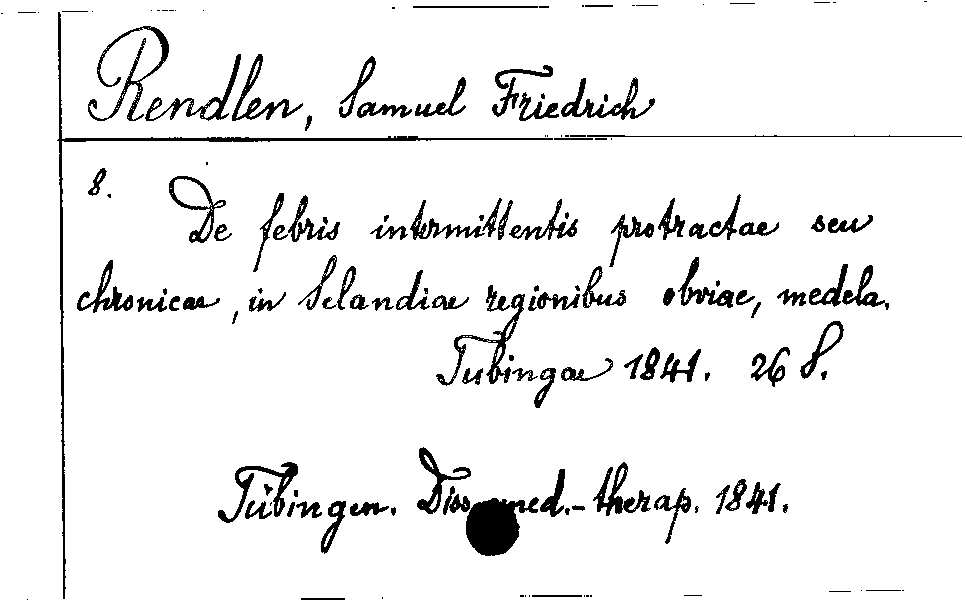 Rendlen, Samuel Friedrich
8. De febris intermittentis protractae seu
chronicae, in Selandiae regionibus obviae, medela.
Tubingae 1841. 26 S.
Tübingen. Diss. med.-therap. 1841.